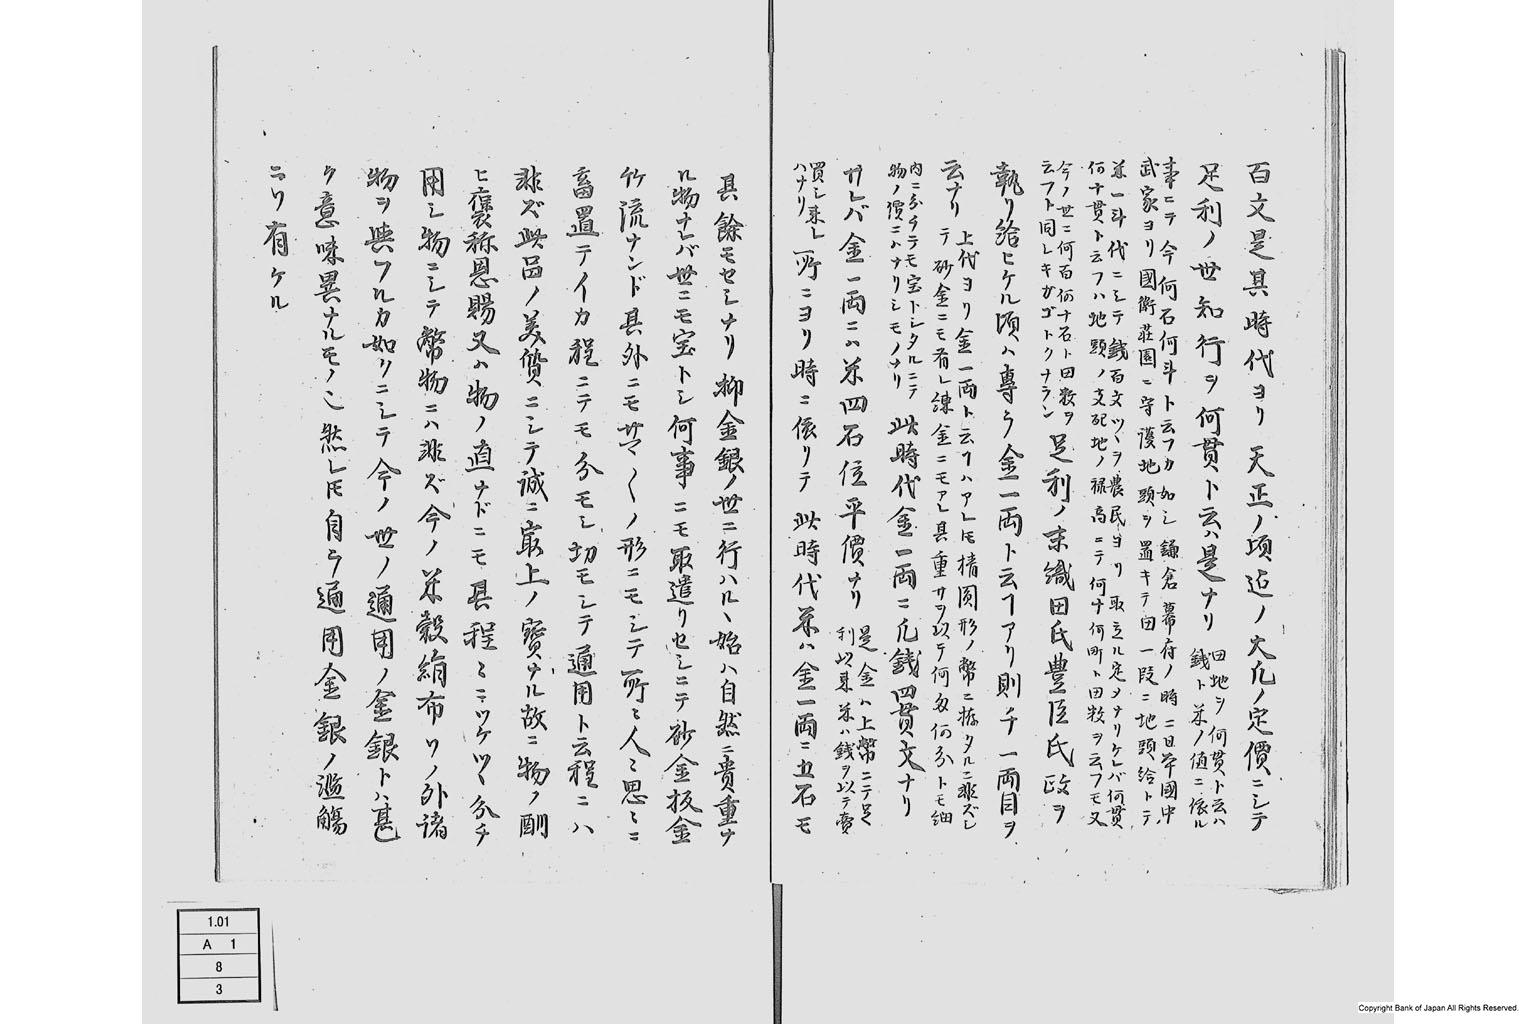 百文是其時代ヨリ天正ノ頃迄ノ大凡ノ定價ニシテ
足利ノ世知行ヲ何貫ト云ハ是ナリ
田地ヲ何貫ト云ハ
錢ト米ノ値ニ依ル
事ニテ今何石何斗ト云フカ如シ鎌倉幕府ノ時ニ日本國中
武家ヨリ國衙莊園ニ守護地頭ヲ置キテ田一段ニ地頭給トテ
米一斗代ニシテ錢百文ツヽヲ農民ヨリ取立ル定ヲナリケレバ何貫
何十貫ト云フハ地頭ノ支配地ノ禄高ニテ何十何町ト田数ヲ云フモ又
今ノ世ニ何百何十石ト田数ヲ
云フト同シキガゴトクナラン
足利ノ末織田氏豊臣氏政ヲ
執リ給ヒケル頃ハ專ラ金一両ト云フアリ則チ一両目ヲ
云ナリ
上代ヨリ金一両ト云フハアレ𪜈楕圓形ノ幣ニ拵タルニ非ズシ
テ砂金ニモ有レ練金ニモアレ其重サヲ以テ何匁何分トモ細
内ニ分チテモ宝トシタルニテ
物ノ價ニハナリシモノナリ
此時代金一両ニ凡錢四貫文ナリ
サレバ金一両ニハ米四石位平價ナリ
是金ハ上幣ニテ足
利以来米ハ錢ヲ以テ賣
買シ来レ
ハナリ
所ニヨリ時ニ依リテ此時代米ハ金一両ニ五石モ
其餘モセシナリ抑金銀ノ世ニ行ハルヽ始ハ自然ニ貴重ナ
ル物ナレバ世ニモ宝トシ何事ニモ取遣リセシニテ砂金板金
竹流ナンド其外ニモサマ〱ノ形ニモシテ所々人々思々ニ
畜置テイカ程ニテモ分モシ切モシテ通用ト云程ニハ
非ズ此品ノ美質ニシテ誠ニ最上ノ寳ナル故ニ物ノ酬
ヒ褒称恩賜又ハ物ノ直ナドニモ其程々ニツケツヽ分チ
用シ物ニシテ幣物ニハ非ズ今ノ米穀絹布ソノ外諸
物ヲ與フルカ如クニシテ今ノ世ノ通用ノ金銀トハ甚
ク意味異ナルモノ也然レ𪜈自ラ通用金銀ノ濫觴
ニソ有ケル
1.01
A 1
8
3
Copyright Bank of Japan All Rights Reserved.